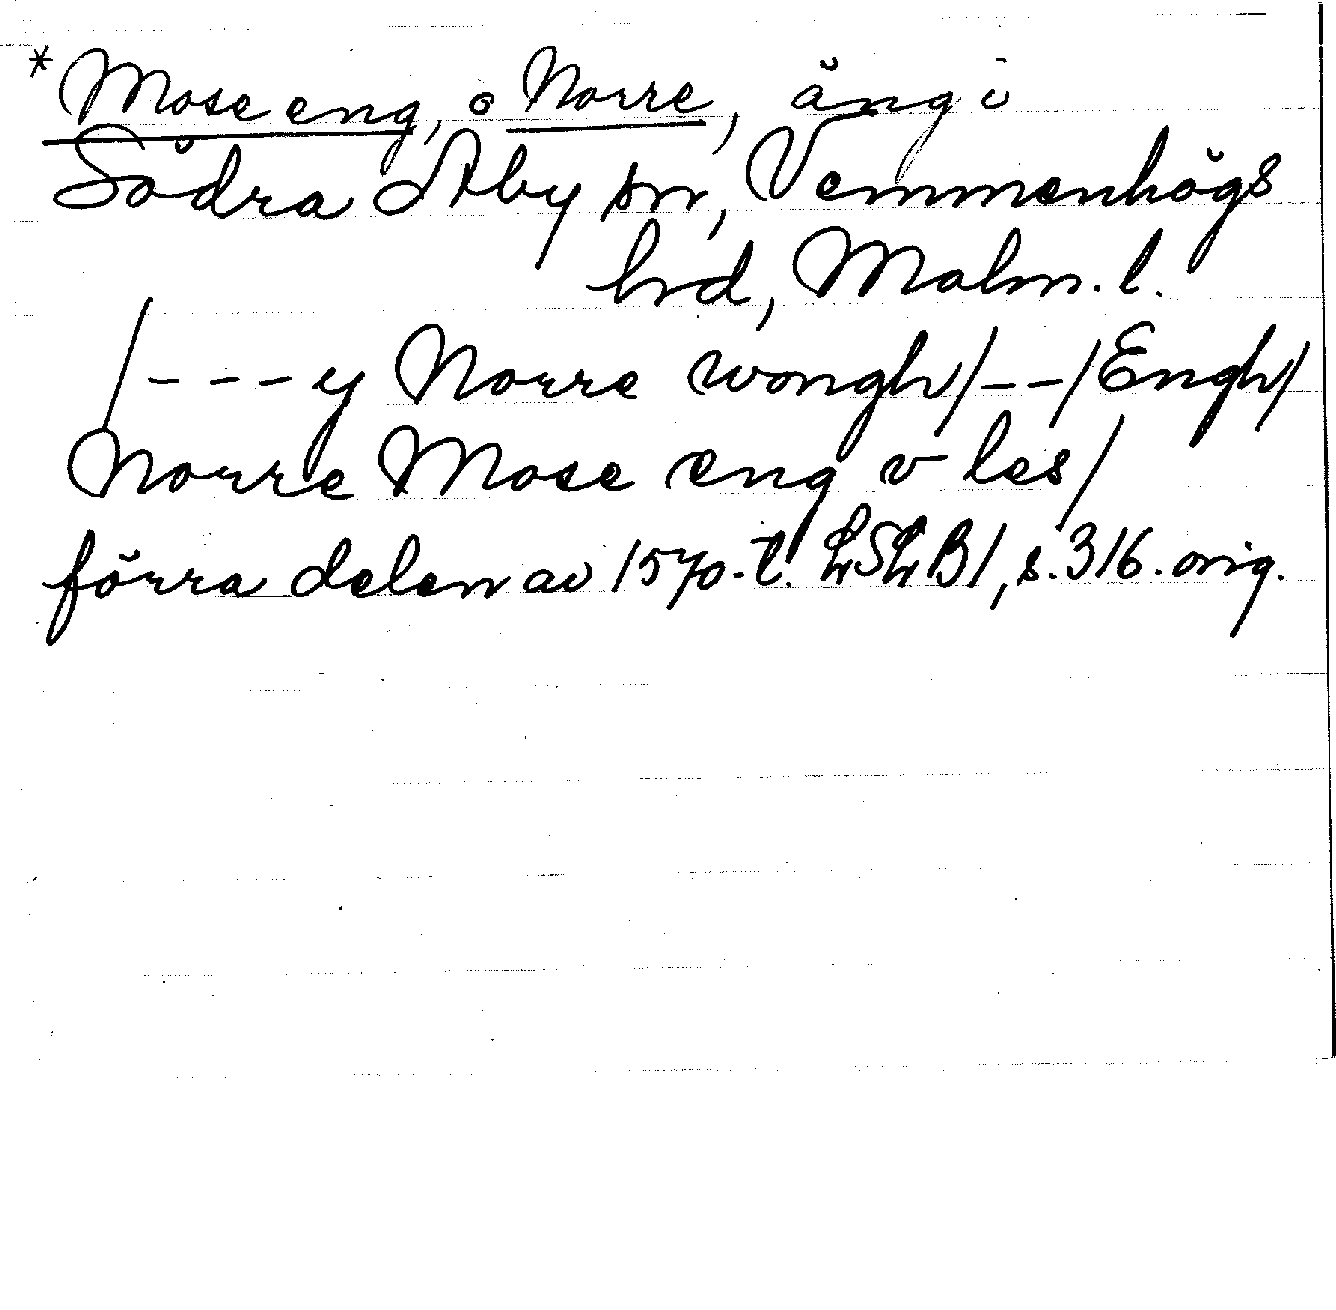 * Mose eng, o Norre, äng i
Södra Åby sn, Vemmenhögs
hrd, Malm. l.
/---y Norre wongh/--/Engh/
Norre Mose eng v les/
förra delen av 1570-t. LSLB1, s. 316. orig.